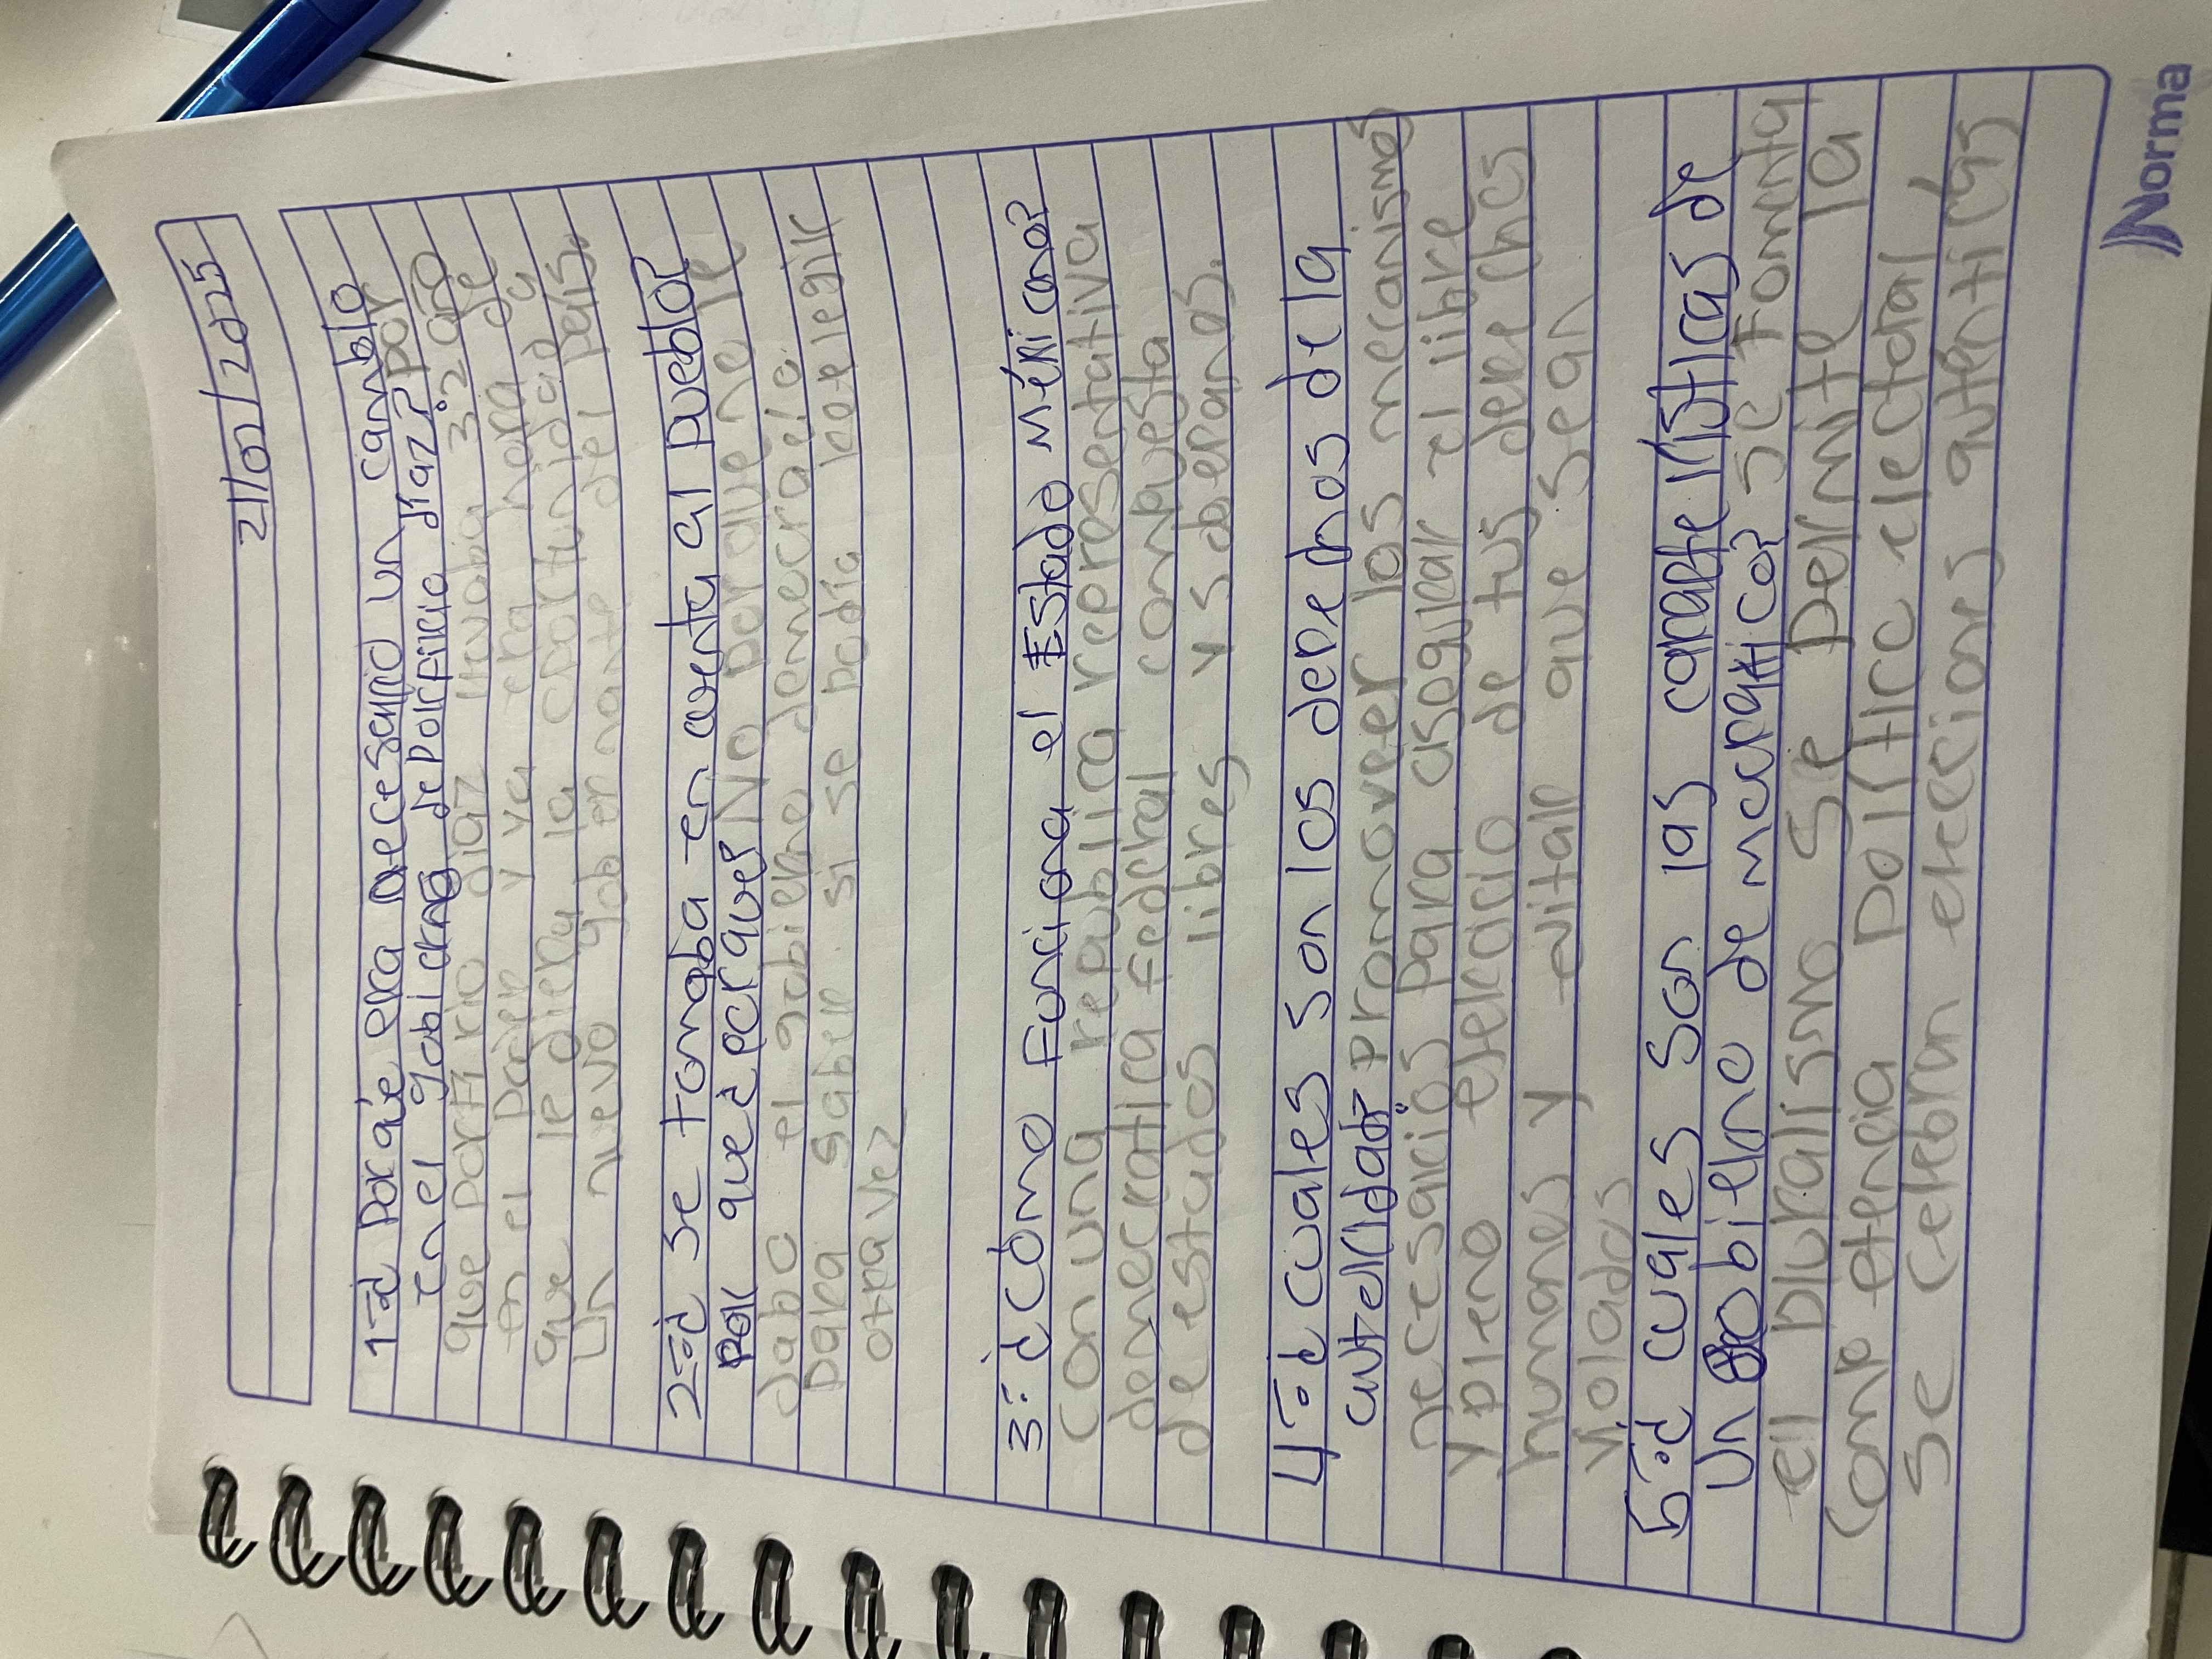 21/02/2025
1=¿Porqué era necesario un cambio
en el gobierno de Porfirio díaz? por
que Porfi rio diaz llevabia 32 año
en el poder y ya era hora de
que le diera la oportunidad a
un nuevo gob er nante del país.
2=¿ Se tomaba en cuenta al pueblo?
por que¿ecraques No porque ne le
dabo el gobierno democracia
para saber si se podia reelegir
otra vez
3=¿Cómo Funciona el Estado Méxicano?
Con una republica representativa
democratica Federal compuesta
de estados libres y soberanos.
4=¿Cuales son los derechos de la
autoridad? Promoveer los mecanismos
necesarios para asegurar el libre
y pleno ejercicio de tus derechos
humanos y evitar que sean
violados
5=¿Cuales son las caracteristicas de
un gobierno de mocratico? Se Fomenta
ell pluralismo Se permite la
Comp etencia politica electoral
Se celebran elecciones auténticas
Norma